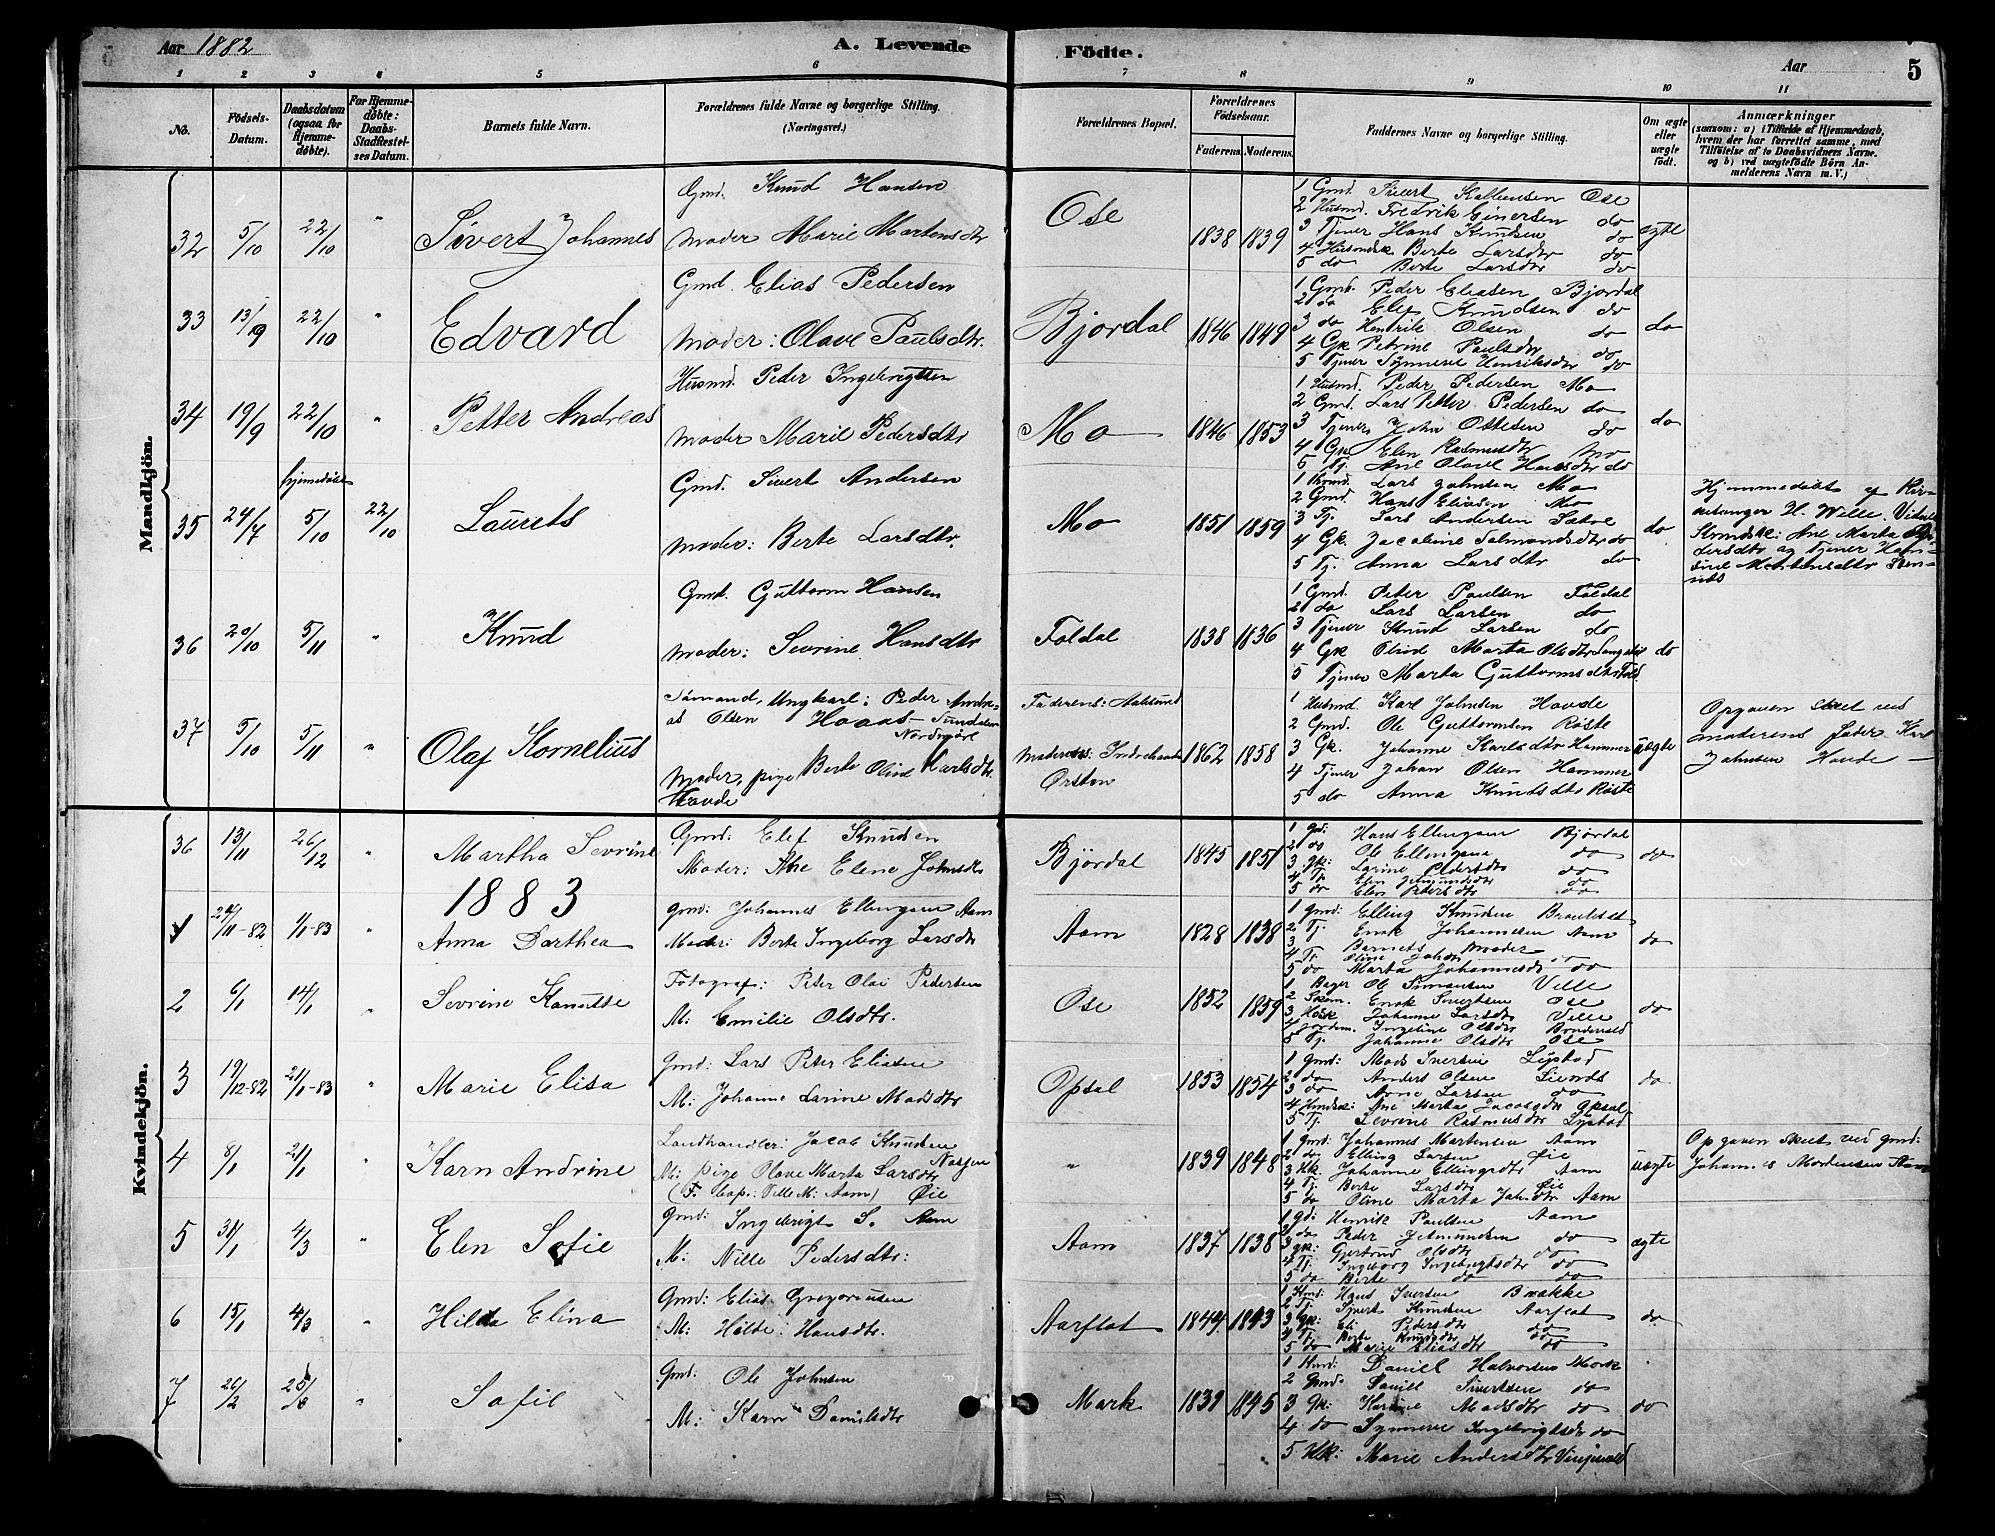 Aar 1882
A. Levende
Födte.
Aar
5
1 2 3 4 5 6 7 8 9 10 11
No.
Födsels-
Datum.
Daabsdatum
(ogsaa for
Hjemme-
döbte).
For Hjemme-
döbte:
Daabs-
Stadfæstel-
ses Datum.
Barnets fulde Navn.
Forældrenes fulde Navne og borgerlige Stilling.
(Næringsvei.)
Forældrenes Bopæl.
Forældrenes
Födselsaar.
Faderens.
Moderens.
Faddernes Navne og borgerlige Stilling.
Om ægte
eller
uægte
født.
Anmærkninger
(saasom: a) i Tilfælde af Hjemmedaab,
hvem der har forrettet samme, med
Tilföielse af to Daabsvidners Navne,
og b) ved uægtefödte Börn An-
melderens Navn m. V.)
Mandkjön.
32 5/10 22/10 " Sivert Johannes
Gmd. Knud Hansen
Moder Marie Martensdtr
Ose 1838 1839
1 Gmd. Sivert Ose
2 Husmd. Fredrik Einersen do
3 Tjener Hans Knudsen do
4 Berte Larsdtr do
5 do Berte Larsdtr do
ægte
33 13/9 22/10 " Edvard
Gmd. Elias Pedersen
Moder: Olave Paulsdtr.
Bjordal 1846 1849
1 Gmd. Peder Eliasen Bjordal
2 do Elef Knudsen do
3 do Hendrik Olsen do
4 Gk Petrine Paulsdtr do
5 Tjener Synneve Henriksdtr do
do
34 19/9 22/10 " Petter Andreas
Husmd. Peder Ingebrigtsen
Moder Marie Pedersdtr
Mo 1846 1853
1 Husmd. Peder Pedersen Mo
2 Gmd. Lars Petter Pedersen do
3 Tjener John Ottesen do
4 Gk Elen Rasmusdtr Mo
5 Tj. Ane Olave Hansdtr do
do
hjemmedøbt
35 24/7 5/10 22/10 Laurits
Gmd. Sivert Andersen
Moder: Berte Larsdtr.
Mo 1851 1859
1 Lars Johnsen Mo
2 Gmd Hans Eliasen Mo
3 Tj. Lars Andersen Sætre
4 Gk Jacobine Salmundsdtr do
5 Tj. Anna Larsdtr do
do
Hjemmedøbt af Kir-
kesanger H. Welle. Vidner
Ane Marta Pe-
dersdtr og Tjener Han-
sine Martensdtr
36 20/10 5/11 " Knud
Gmd. Guttorm Hansen
Moder: Sevrine Hansdtr
Foldal 1838 1836
1 Gmd. Peter Paulsen Foldal
2 do Lars Larsen do
3 Tjener Knud Larsen do
4 Gk Oline Marta Olsdtr
5 Tjener Marta Guttormsdtr Fold.
do
37 5/10 5/11 " Olaf Kornelius
Sømand, Ungkarl: Peder Andre-
as Olsen Hoaas - Sundalen
Nordmøre
Moder, pige Berte Oline Karlsdtr.
Hovde
Faderens: Aalesund
Moderens:
Ørsten
1862 1858
1 Husmd Karl Johnsen Hovde
2 Gmd. Ole Guttormsen Røste
3 Gk. Johanne Karlsdtr Hammer
4 Tjener Johan Olsen Hammer
5 do Anna Knudsdtr Røste
uægte
Opgaven skeet ved
moderens fader Karl
Johnsen Hovde —
Kvindekjön.
36 13/11 26/12 " Martha Sevrine
Gmd: Elef Knudsen
Moder: Ane Elene Johnsdtr
Björdal 1845 1851
1 Gd: Hans Ellingsen Bjørdal
2 do Ole Ellingsen do
3 Gk: Larine Pedersdtr do
4 Tj. Elen do
5 do Elen Pedersdtr do
do
1883
1 1/1-83 Anna Dorthea
Gmd: Johannes Ellingsen Aam
Moder: Berte Ingeborg Larsdtr
Aam 1828 1838
1 Gmd: Elling Knudsen
2 Tj. Enok Johannesen Aam
3 Barnets Moder
4 Tj. Oline Johsdtr
5 do Marta Johannesdtr do
do
2 6/1 14/1 " Sevrine Kanutte
Fotograf: Peter Olai Pedersen
M: Emilie Olsdtr.
Ose 1852 1859
1 Ole Simonsen Velle
2 Enok Sivertsen Ose
3 Johanne Larsdtr Velle
4 Jordm. Ingeline Olsdtr
5 Tj. Johanne Olsdtr Ose
do
3 19/12-82 21/1-83 " Marie Elisa
Gmd: Lars Peter Eliasen
M: Johanne Larine Madsdtr
Opsal 1853 1854
1 Gmd: Mads Iversen
2 do Anders Olsen
3 do Arne Larsen do
4 Ane Marta Jacobsdtr Opsal
5 Tj. Sevrine Rasmusdtr
do
4 8/1 21/1 " Karn Andrine
Landhandler: Jacob Knudsen
M: pige Olave Marta Larsdtr
(F. bop: Velle M: Aam) Øie
" 1839 1848
1 Gmd: Johannes Martensen Aam
2 do Elling Larsen Øie
3 Johanne Ellingsdtr Aam
4 Tj. Berte Larsdtr Øie
5 do Oline Marta Johsdtr Aam
uægte
Opgaven skeet ved Gmd:
Johannes Mortensen Aam
5 31/1 4/3 " Elen Sofie
Gmd: Ingebrigt S. Aam
M: Nille Pedersdtr:
Aam 1837 1838
1 Gd: Henrik Paulsen Aam
2 do Peder do
3 Gk: Gjertrud Olsdtr do
4 Tj. Ingeborg Ingebrigtsdtr do
5 do Berte do do
ægte
6 15/1 4/3 " Hilda Elina
Gmd: Elias Gregoriusen
M: Hilde Hansdtr.
Aarflot 1844 1843
1 Hans Iversen Brække
2 Tj. Sivert Knudsen Aarflot
3 Gk: Eli Pedersdtr do
4 Tj. Berte Knudsdtr do
5 do Marie Eliasdtr do
do
7 26/2 " Sofie
Gmd: Ole Johnsen
M: Karn Danielsdtr
Mark 1839 1845
1 Daniel Halvorsen Mark
2 Gmd: Daniel Sivertsen do
3 Gk: Karine Madsdtr do
4 do Synneve Ingebrigtsdtr do
5 Marie Andersdtr
do